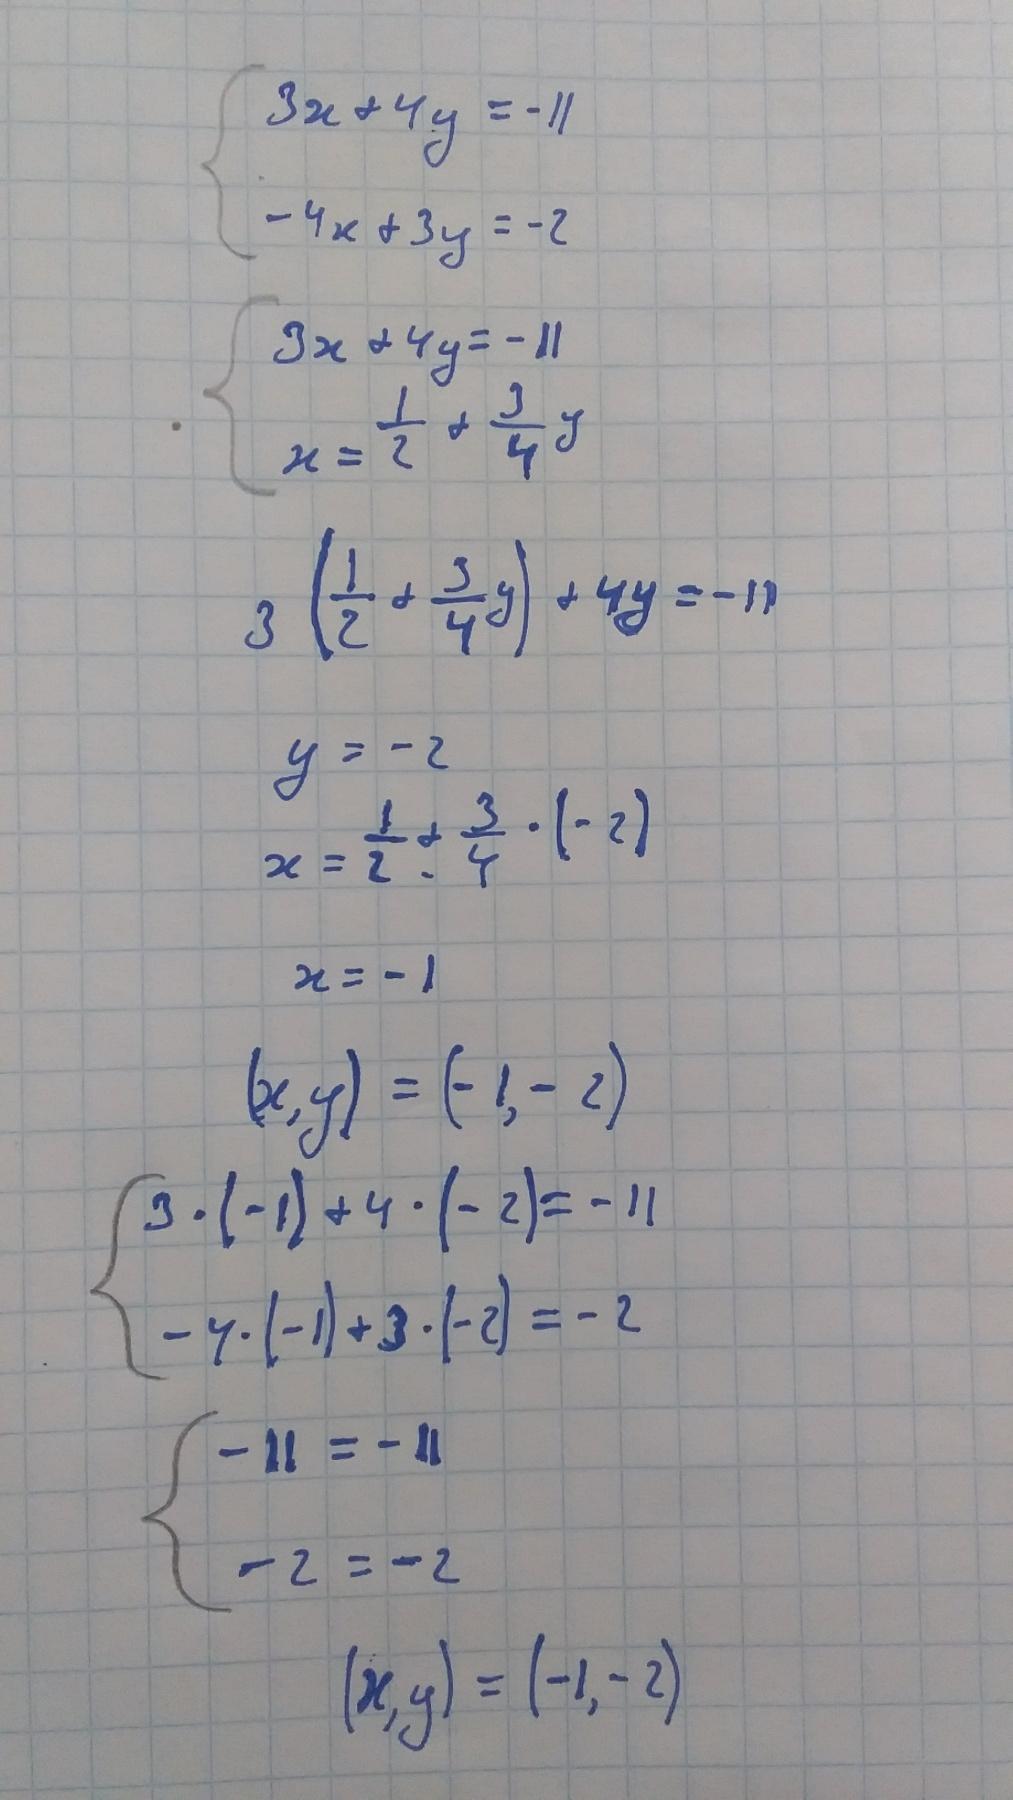 3x + 4y = -11
-4x + 3y = -2
3x + 4y = -11
x = 1/2 + 3/4 y
3 (1/2 + 3/4 y) + 4y = -11
y = -2
x = 1/2 + 3/4 · (-2)
x = -1
(x, y) = (-1, -2)
3 · (-1) + 4 · (-2) = -11
-4 · (-1) + 3 · (-2) = -2
-11 = -11
-2 = -2
(x, y) = (-1, -2)